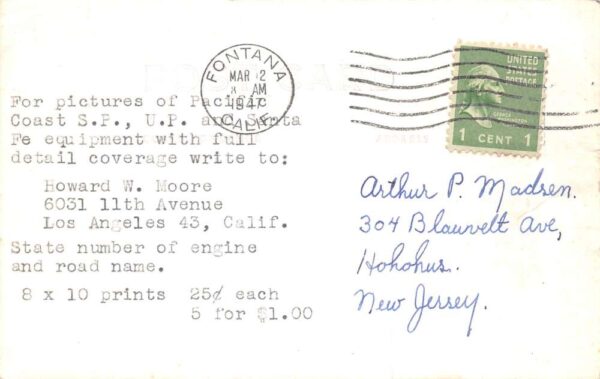 FONTANA
MAR 2
AM
1947
CALIF.
UNITED
STATES
POSTAGE
1 CENT 1
For pictures of Pacific
Coast S.P., U.P. and Santa
Fe equipment with full
detail coverage write to:
Howard W. Moore
6031 11th Avenue
Los Angeles 43, Calif.
State number of engine
and road name.
8 x 10 prints 25¢ each
5 for $1.00
Arthur P. Madsen.
304 Blauvelt Ave,
Hohohus.
New Jersey.